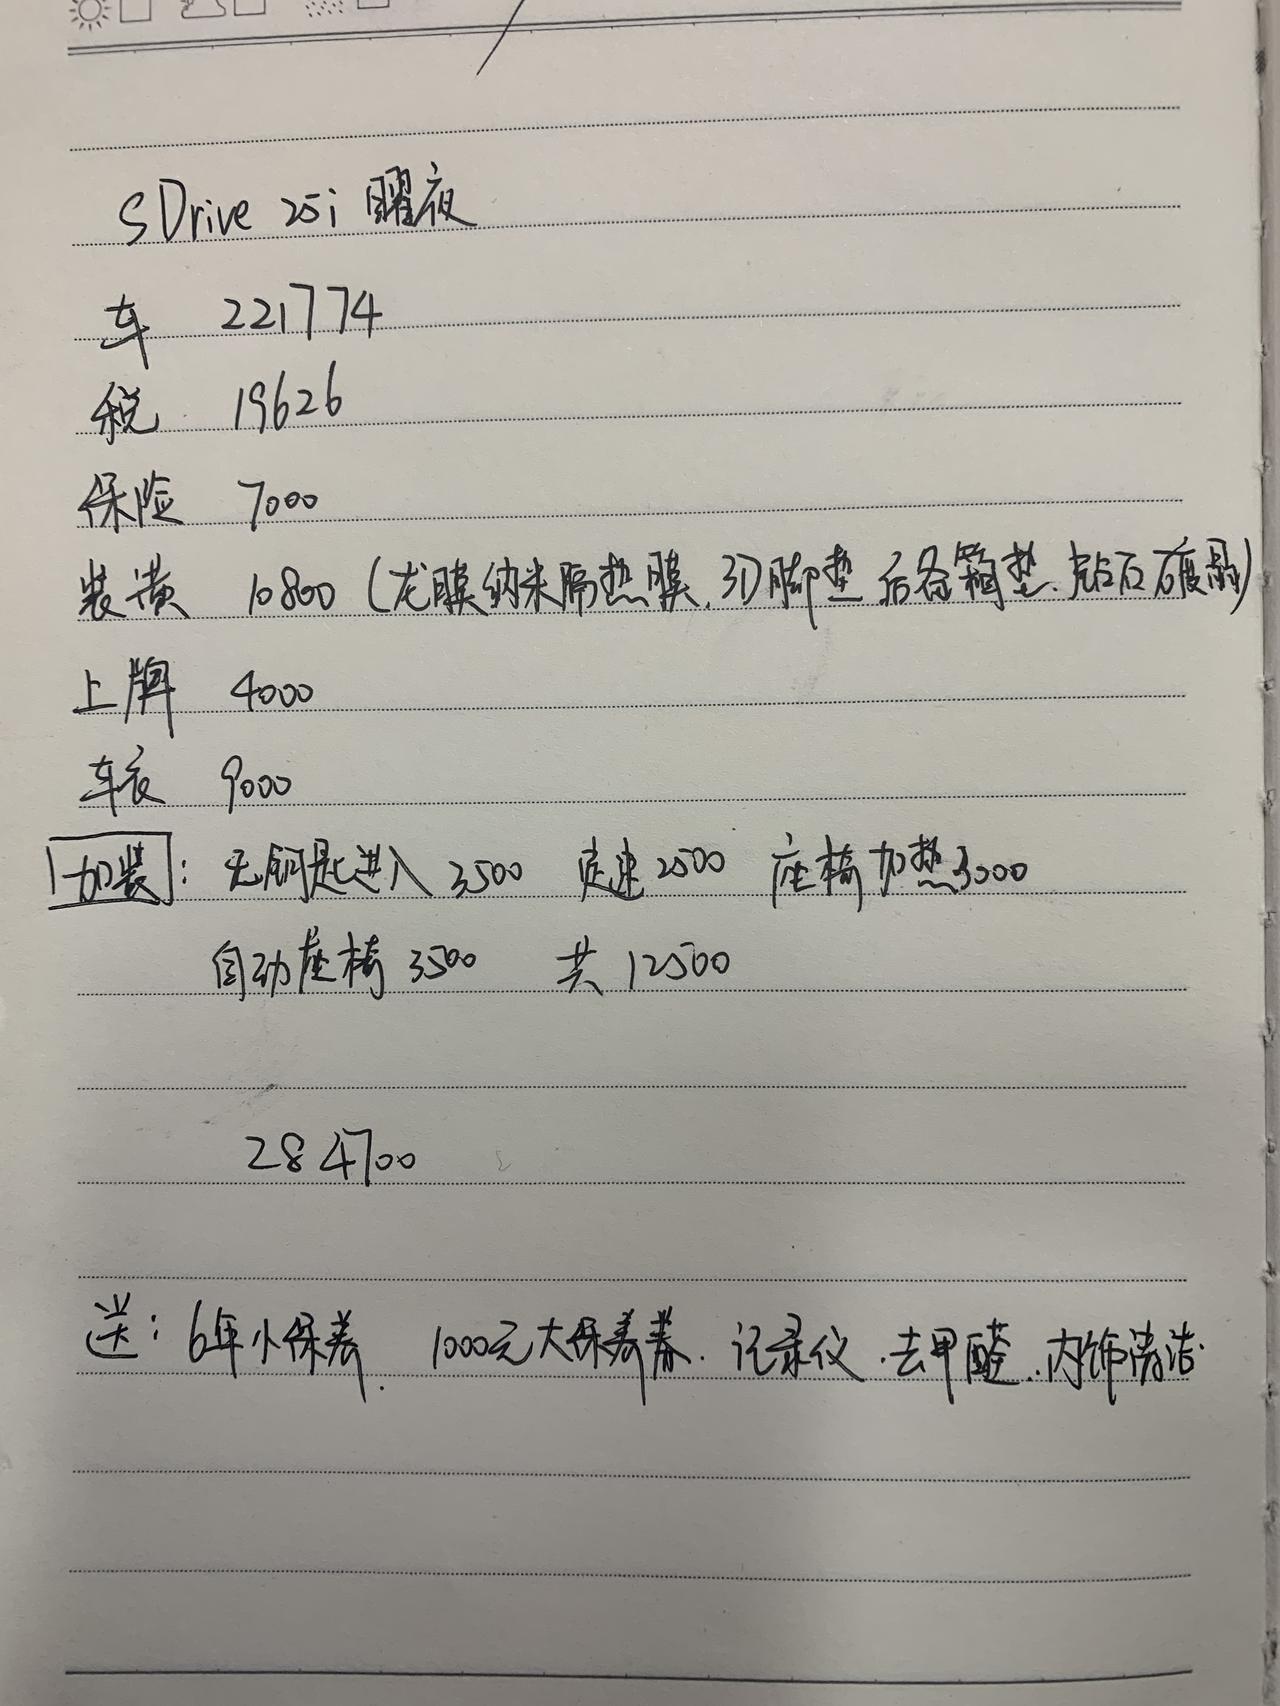 SDrive 25i 曜夜
车 221774
税 19626
保险 7000
装潢 10800 (龙膜纳米隔热膜、3D脚垫 后备箱垫、钻石镀晶)
上牌 4000
车衣 9000
加装: 无钥匙进入 3500 定速2500 座椅加热3000
自动座椅 3500 共 12500
284700
送: 6年小保养、1000元大保养券、记录仪、去甲醛、内饰清洁